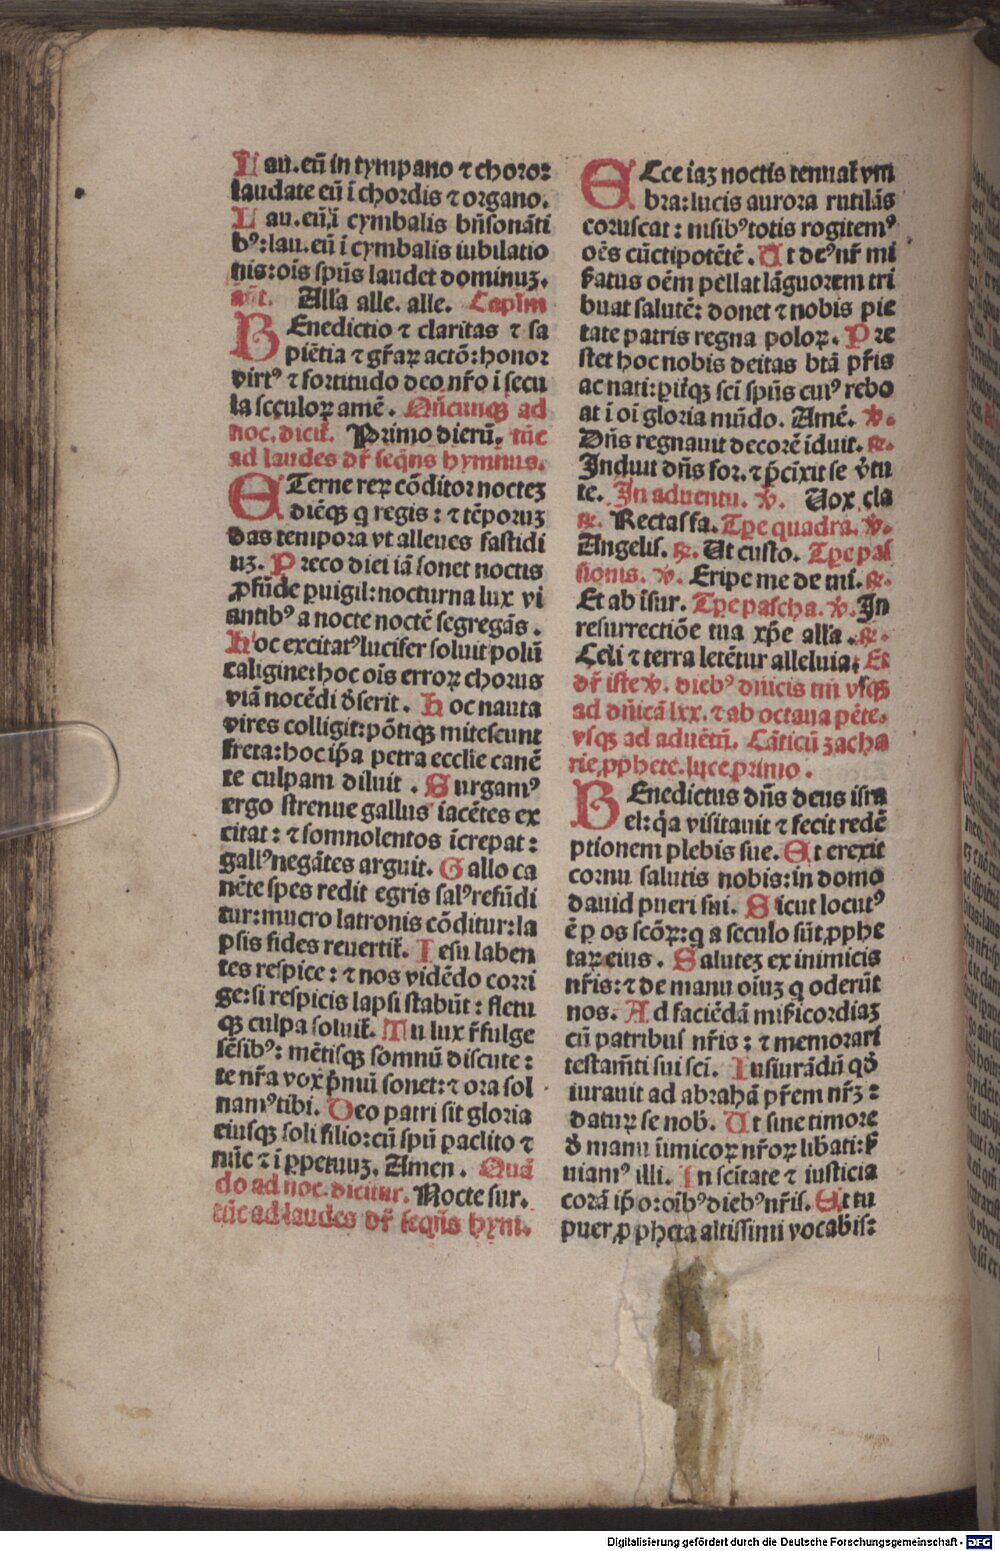 Lau. eū in tympano ⁊ choro:
laudate eū ī chordis ⁊ organo.
Lau. eū. ī cymbalis bn̄sonāti
bꝰ: lau. eū ī cymbalis iubilatio
nis: oīs spūs laudet dominuꝫ.
an̄t. Alla alle. alle. Caplm
BEnedictio ⁊ claritas ⁊ sa
piētia ⁊ gr̄aꝝ actō: honor
virtꝰ ⁊ fortitudo deo nr̄o ī secu
la seculoꝝ amē. Qn̄cunqꝫ ad
noc. dicit̄. Primo dierū. tūc
ad laudes dr̄ seqn̄s hymnus.
ETerne reꝝ cōditor nocteꝫ
diēqꝫ q regis: ⁊ tēporuꝫ
das tempora vt alleues fastidi
uꝫ. Preco diei iā sonet noctis
ꝓfūde ꝑuigil: nocturna lux vi
antibꝰ a nocte noctē segregās.
Hoc excitatꝰ lucifer soluit polū
caligine: hoc oīs erroꝝ chorus
viā nocēdi d̄serit. Hoc nauta
vires colligit: pōtiqꝫ mitescunt
freta: hoc ip̄a petra ecclie canē
te culpam diluit. Surgamꝰ
ergo strenue gallus iacētes ex
citat: ⁊ somnolentos īcrepat:
gallꝰ negātes arguit. Gallo ca
nēte spes redit egris salꝰ refūdi
tur: mucro latronis cōditur: la
psis fides reuertit̄. Iesu laben
tes respice: ⁊ nos vidēdo corri
ge: si respicis lapsi stabūt: fletu
qꝫ culpa soluit̄. Tu lux r̄fulge
sēsibꝰ: mētisqꝫ somnū discute:
te nr̄a vox p̄mū sonet: ⁊ ora sol
namꝰ tibi. Deo patri sit gloria
eiusqꝫ soli filio: cū spū ꝑaclito ⁊
nūc ⁊ ī ꝑpetuuꝫ. Amen. Quā
do ad noc. dicitur. Nocte sur.
tūc ad laudes dr̄ seqn̄s hym.
ECce iaꝫ noctis tenuat̄ vm
bra: lucis aurora rutilās
coruscat: nisibꝰ totis rogitemꝰ
oēs cūctipotētē. Ut deꝰ nr̄ mi
s̄atus oēm pellat lāguorem tri
buat salutē: donet ⁊ nobis pie
tate patris regna poloꝝ. Pre
stet hoc nobis deitas btā pr̄is
ac nati: pit̄qꝫ sci spūs cuiꝰ rebo
at ī oī gloria mūdo. Amē. ℣.
Dn̄s regnauit decorē īduit. ℟.
Induit dn̄s for. ⁊ p̄cīxit se v̄tu
te. In aduentu. ℣. Uox cla
℟. Rectas fa. Tꝑe quadra. ℣.
Angelis. ℟. Ut custo. Tꝑe pas
sionis. ℣. Eripe me de mī. ℟.
Et ab īsur. Tꝑe pascha. ℣. In
resurrectiōe tua xp̄e alla. ℟.
Celi ⁊ terra letētur alleluia. Et
dr̄ iste ℣. diebꝰ dn̄icis tm̄ vsqꝫ
ad dn̄icā lxx. ⁊ ab octaua pēte.
vsqꝫ ad aduētū. Cāticū zacha
rie ꝓphete. luce primo.
BEnedictus dn̄s deus isra
el: q̄a visitauit ⁊ fecit redē
ptionem plebis sue. Et erexit
cornu salutis nobis: in domo
dauid pueri sui. Sicut locutꝰ
ē ꝑ os scōꝝ: q a seculo sūt ꝓphe
taꝝ eius. Saluteꝫ ex inimicis
nr̄is: ⁊ de manu oīuꝫ q oderūt
nos. Ad faciēdā mis̄icordiaꝫ
cū patribus nr̄is: ⁊ memorari
testam̄ti sui sci. Iusiurādū qd̄
iurauit ad abrahā pr̄em nr̄ꝫ:
daturꝝ se nob̄. Ut sine timore
d̄ manu īimicoꝝ nr̄oꝝ lib̄ati: s̄
uiamꝰ illi. In scītate ⁊ iusticia
corā ip̄o: oībꝰ diebꝰ nr̄is. Et tu
puer ꝓpheta altissimi vocabis:
Digitalisierung gefördert durch die Deutsche Forschungsgemeinschaft - DFG